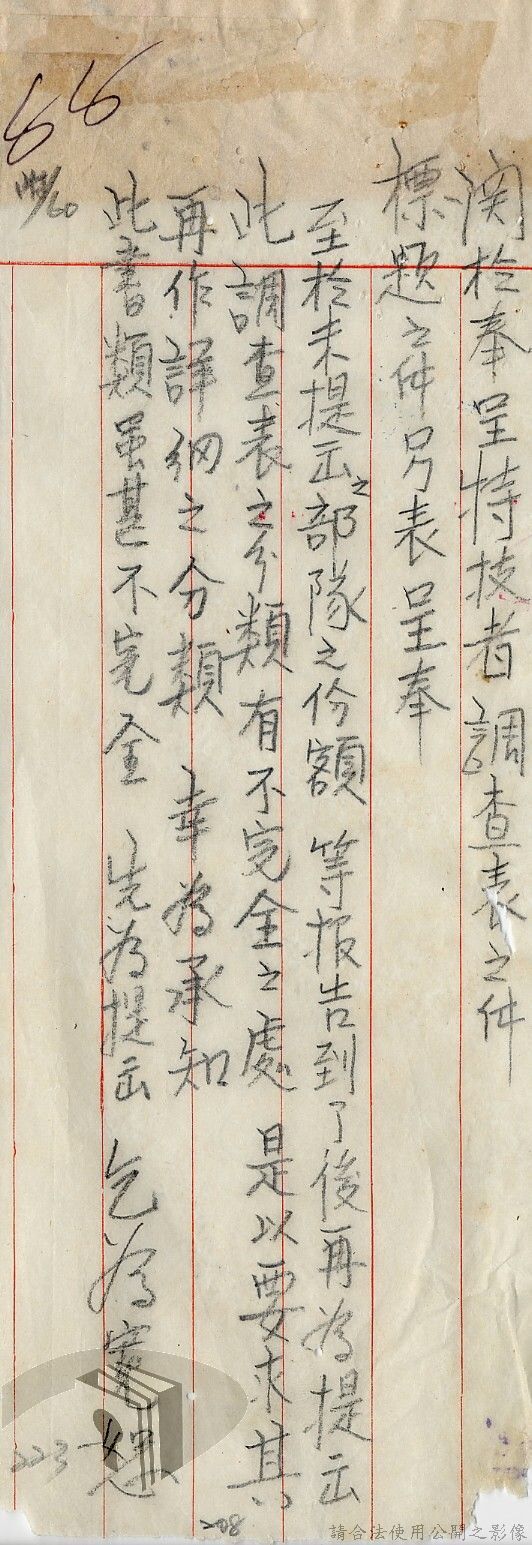 関於奉呈特技者調查表之件
標題之件另表呈奉
至於未提示之部隊之份額 等報告到了後再為提示
此調查表之分類有不完全之處 是以要求其
再作詳細之分類 幸為承知
此書類虽甚不完全 先為提示 乞為寬恕
60
223
208
請合法使用公開之影像